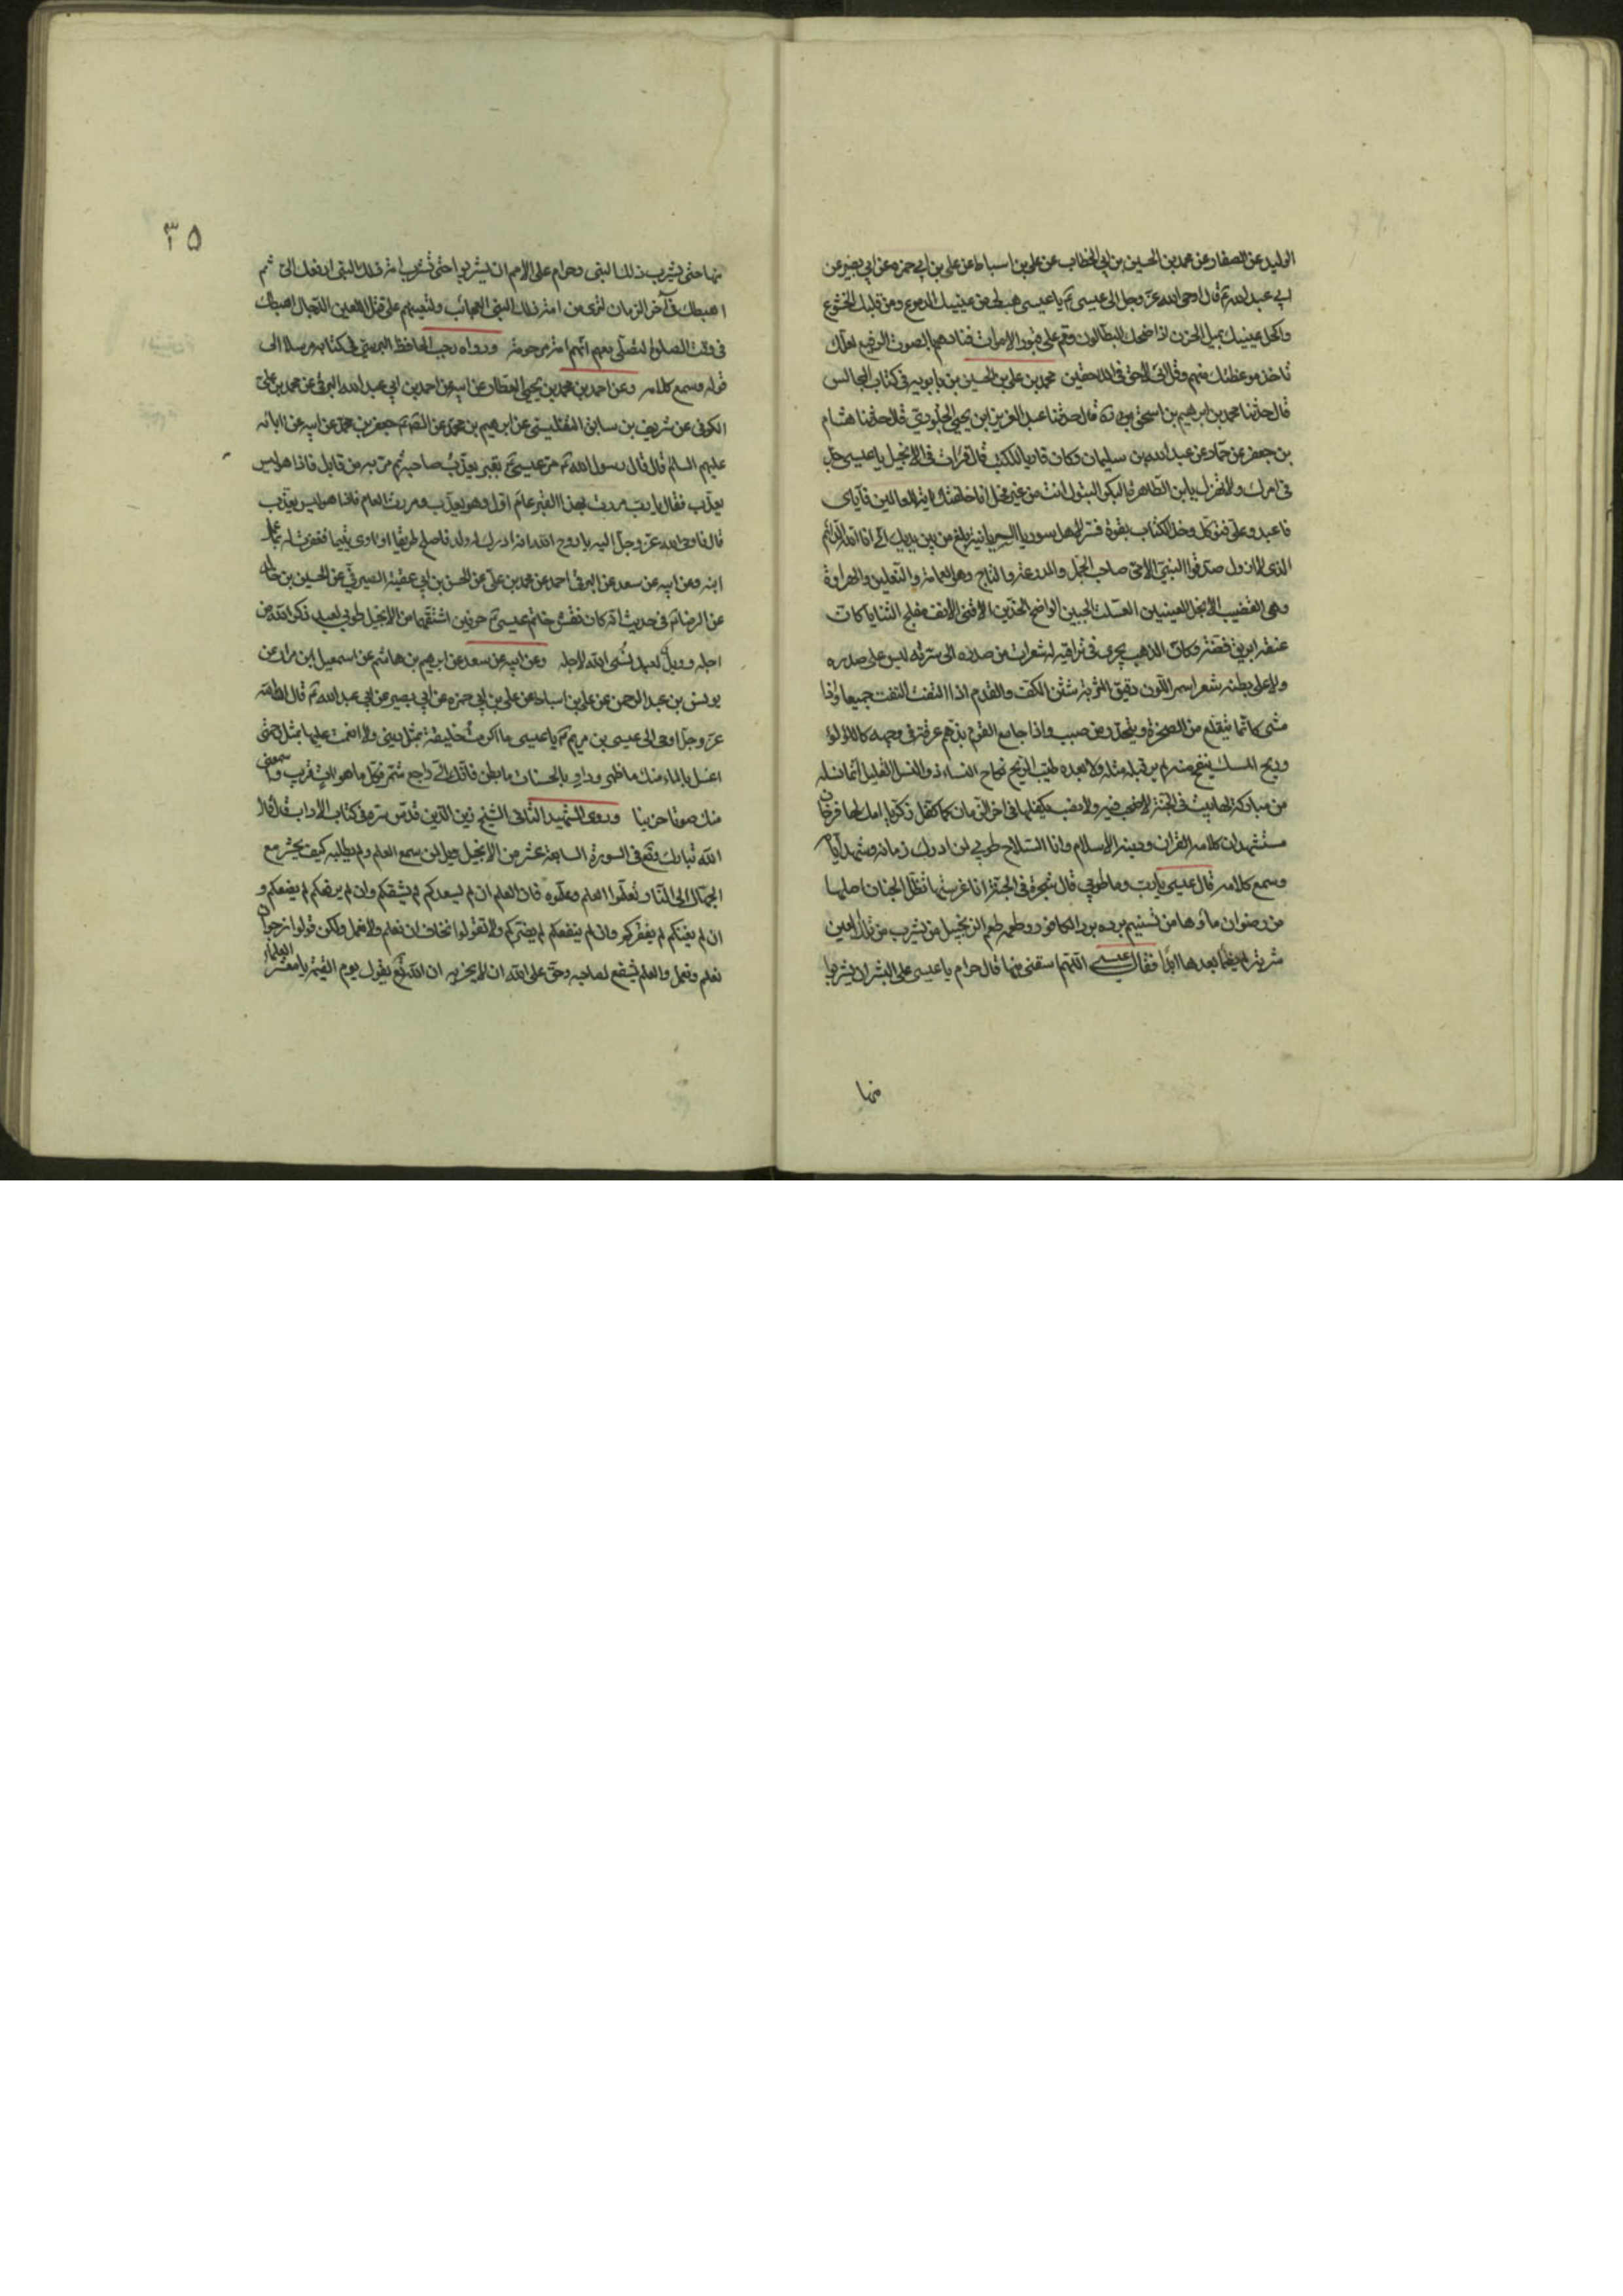 الوليد عن الصفار عن محمد بن الحسين بن ابي الخطاب عن علي بن اسباط عن علي بن ابي حمزه عن ابي بصير عن
ابي عبد الله ع قال اوحى الله عز وجل الى عيسى ع يا عيسى هب لي من عينيك الدموع ومن قلبك الخشوع
واكحل عينيك بميل الحزن اذا ضحك البطالون وقم على قبور الاموات فنادهم بالصوت الرفيع لعلك
تاخذ موعظتك منهم وقل اني لاحق في اللاحقين محمد بن علي بن الحسين بن بابويه في كتاب المجالس
قال حدثنا محمد بن ابرهيم بن اسحق قال حدثنا عبد العزيز ابن يحيى الجلودي قال حدثنا هشام
بن جعفر عن حماد عن عبد الله بن سليمان وكان قاريا للكتب قال قرات في الانجيل يا عيسى جد
في امرك ولا تهزل يابن الطاهرة البكر البتول انت من غير فحل انا خلقتك اية للعالمين فاياي
فاعبد وعلي فتوكل وخذ الكتاب بقوة فسر لاهل سوريا السريانية بلغ من بين يديك اني انا الله الدائم
الذي لا ازول صدقوا النبي الامي صاحب الجمل والمدرعة والتاج وهي العمامة والنعلين والهراوة
وهي القضيب الانجل العينين الصلت الجبين الواضح الخدين الاقنى الانف مفلج الثنايا كان
عنقه ابريق فضة وكان الذهب يجري في تراقيه له شعرات من صدره الى سرته ليس على صدره
ولا على بطنه شعر اسمر اللون دقيق المسربة شثن الكف والقدم اذا التفت التفت جميعا واذا
مشى كانما يتقلع من الصخرة وينحدر من صبب واذا جامع القوم بذهم عرقه في وجهه كاللؤلؤ
وريح المسك ينفح منه لم ير قبله مثله ولا بعده طيب الريح نكاح النساء ذو النسل القليل انما نسله
من مباركة لها بيت في الجنة لا صخب فيه ولا نصب يكفلها في اخر الزمان كما كفل زكريا امك لها فرخان
مستشهدان كلامه القران ودينه الاسلام وانا السلام طوبى لمن ادرك زمانه وشهد ايامه
وسمع كلامه قال عيسى يا رب وما طوبى قال شجرة في الجنة انا غرستها تظل الجنان اصلها
من رضوان ماؤها من تسنيم برده برد الكافور وطعمه طعم الزنجبيل من يشرب من تلك العين
شربة لم يظمأ بعدها ابدا فقال عيسى اللهم اسقني منها قال حرام يا عيسى على البشر ان يشربوا
منها
٣٥
منها حتى يشرب ذلك النبي وحرام على الامم ان يشربوا حتى تشرب امة ذلك النبي ارفعك الي ثم
اهبطك في آخر الزمان لترى من امة ذلك النبي العجائب ولتعينهم على قتل اللعين الدجال اهبطك
في وقت الصلوة لتصلي معهم انهم امة مرحومة ورواه رجب الحافظ البرسي في كتابه مرسلا الى
قوله وسمع كلامه وعن احمد بن محمد بن يحيى العطار عن ابيه عن احمد بن ابي عبد الله البرقي عن محمد بن علي
الكوفي عن شريف بن سابق التفليسي عن ابرهيم بن محمد عن الصادق جعفر بن محمد عن ابيه عن ابائه
عليهم السلام قال قال رسول الله ص مر عيسى ع بقبر يعذب صاحبه ثم مر به من قابل فاذا هو ليس
يعذب فقال يا رب مررت بهذا القبر عام اول وهو يعذب ومررت العام فاذا هو ليس يعذب
قال فاوحى الله عز وجل اليه يا روح الله انه ادرك له ولد فاصلح طريقا او اوى يتيما فغفرت له بما عمل
ابنه وعن ابيه عن سعد عن البرقي احمد عن محمد بن علي عن الحسن بن ابي عقبة الصيرفي عن الحسين بن خالد
عن الرضا ع في حديث انه كان نقش خاتم عيسى ع حرفين اشتقهما من الانجيل طوبى لعبد ذكر الله من
اجله وويل لعبد نسي الله لاجله وعن ابيه عن سعد عن ابرهيم بن هاشم عن اسمعيل ابن مرار عن
يونس بن عبد الرحمن عن علي بن اسباط عن علي بن ابي حمزه عن ابي بصير عن ابي عبد الله ع قال ان الله
عز وجل اوحى الى عيسى بن مريم ع يا عيسى ما اكرمت خليقة بمثل ديني ولا انعمت عليها بمثل رحمتي
اغسل بالماء منك ما ظهر وداو بالحسنات ما بطن فانك الي راجع شمر فكل ما هو ات قريب واسمعني
منك صوتا حزينا وروى الشهيد الثاني الشيخ زين الدين قدس سره في كتاب الاداب قال قال
الله تبارك وتع في السورة السابعة عشر من الانجيل ويل لمن سمع العلم ولم يطلبه كيف يحشر مع
الجهال الى النار تعلموا العلم وعلموه فان العلم ان لم يسعدكم لم يشقكم وان لم يرفعكم لم يضعكم و
ان لم يغنكم لم يفقركم وان لم ينفعكم لم يضركم ولا تقولوا نخاف ان نعلم ولا نعمل ولكن قولوا نرجوا ان
نعلم ونعمل والعلم يشفع لصاحبه وحق على الله ان لا يخزيه ان الله تع يقول يوم القيمة يا معشر العلماء